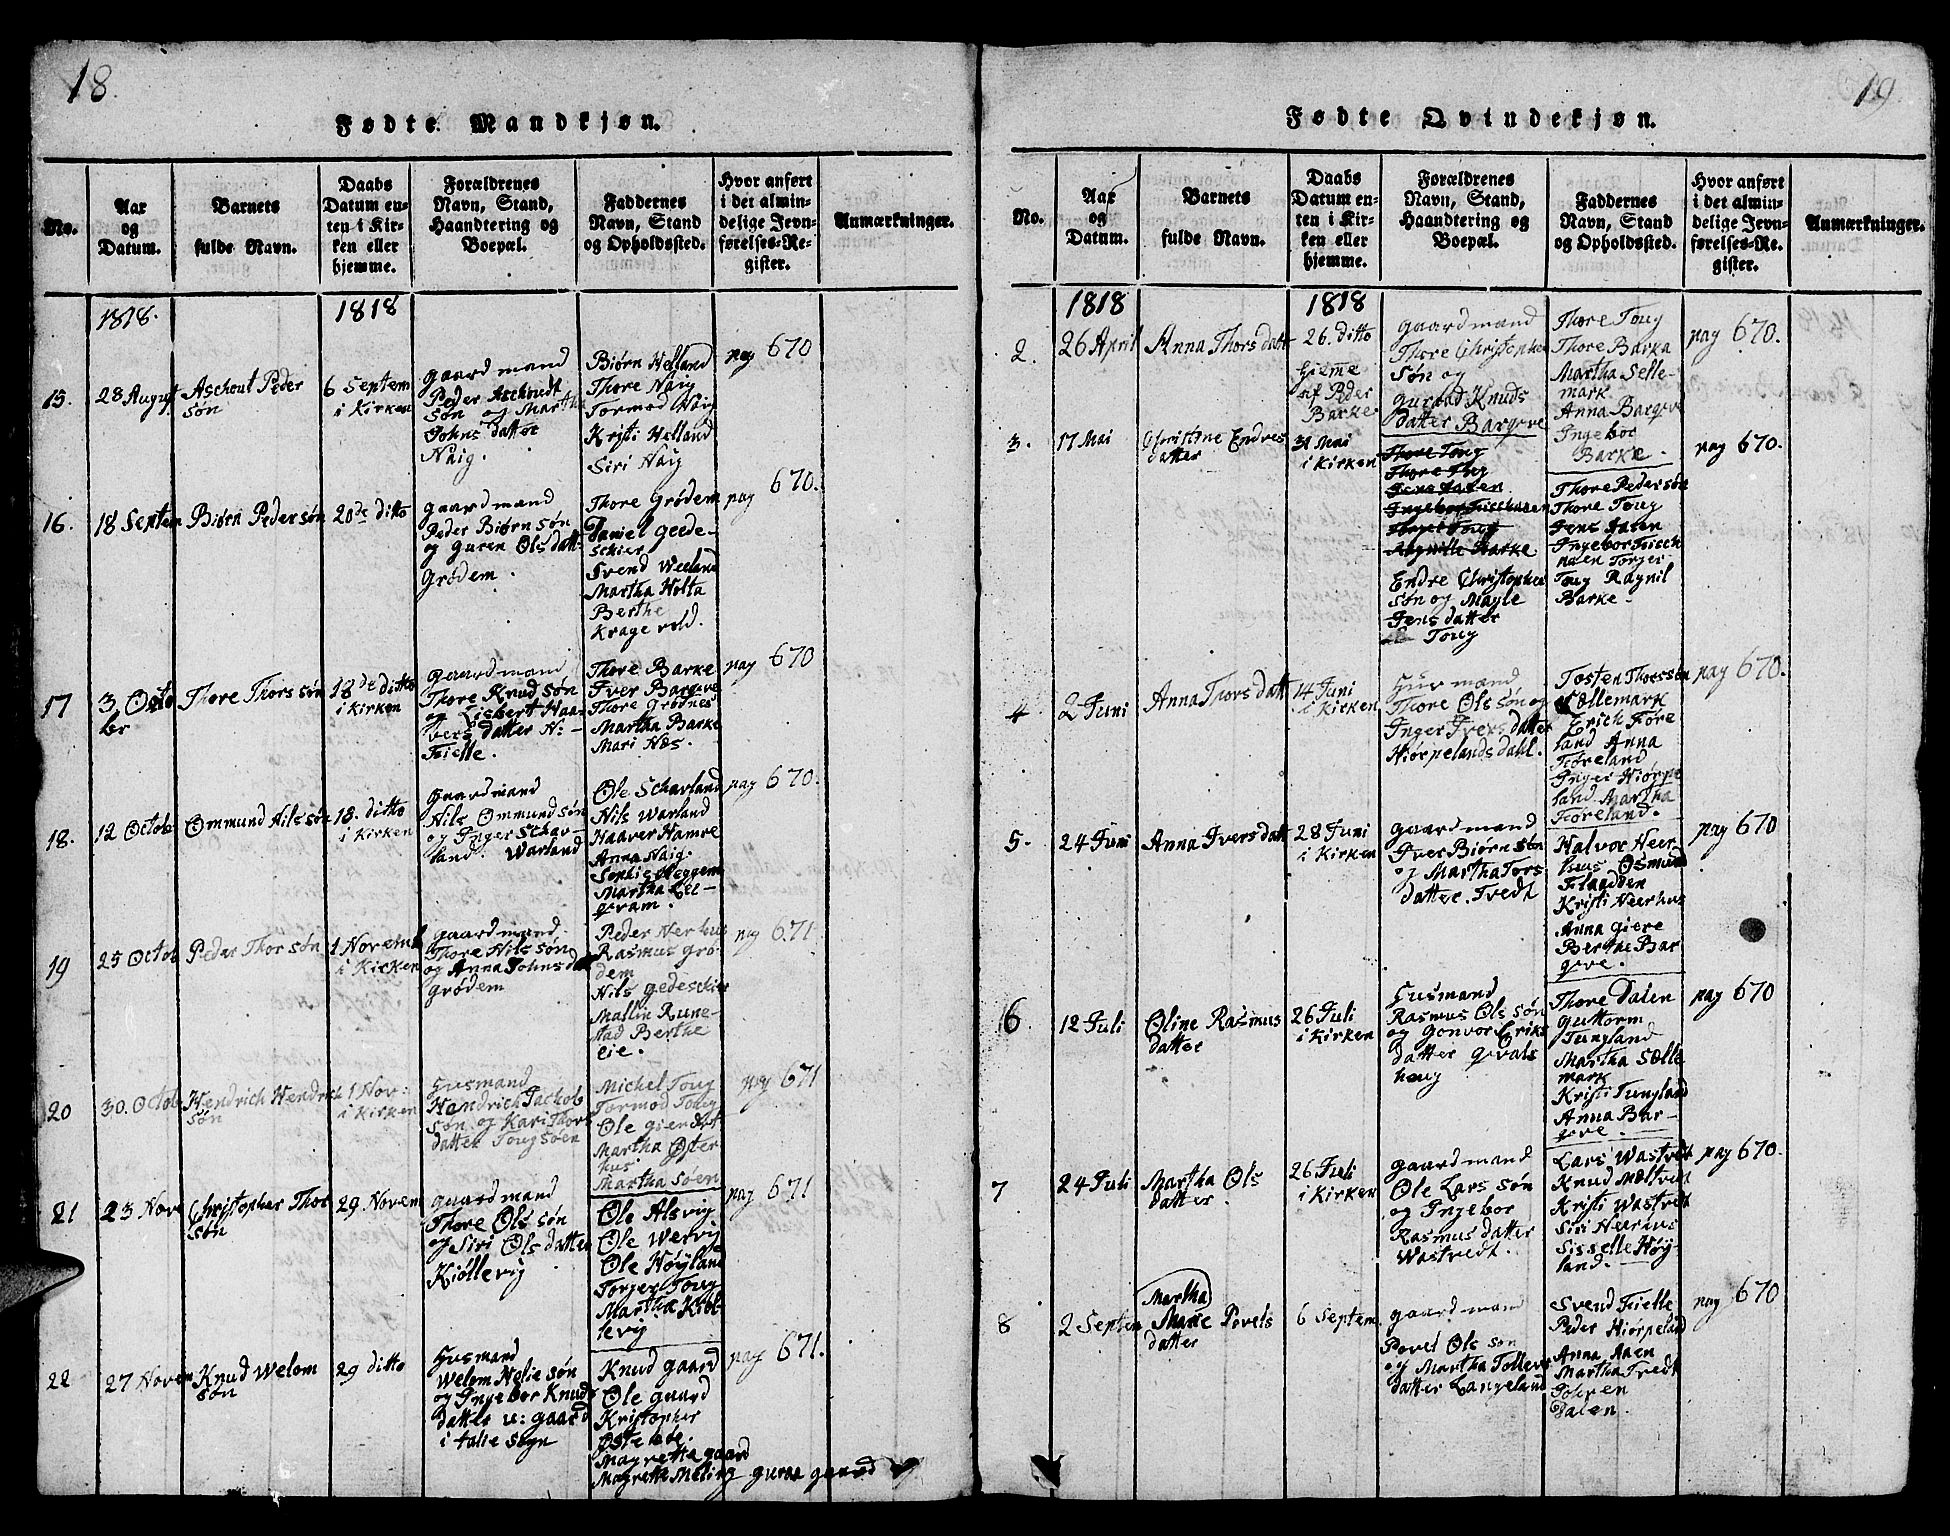 18.
Fødte Mandkjøn.
No.
Aar
og
Datum.
Barnets
fulde Navn.
Daabs
Datum en-
ten i Kir-
ken eller
hjemme.
Forældrenes
Navn, Stand,
Haandtering og
Boepæl.
Faddernes
Navn, Stand
og Opholdssted.
Hvor anført
i det almin-
delige Jevn-
førelses-Re-
gister.
Anmærkninger.
1818.
1818
15.
28 August
Aschout Peder
søn
6 Septem
i Kirken
gaardmand
Peder Aschoudt
søn og Martha
Johns datter
Naig.
Biørn Helland
Thore Naig
Tormod Naig
Kristi Helland
Siri Naig
pag 670
16.
18 Septem
Biørn Peder søn
20de ditto
gaardmand
Peder Biørn søn
og Guren Ols datt
Grødem.
Thore Grødem
Daniel geede-
schier
Svend Weeland
Martha Holta
Berthe
Krage vold.
pag 670.
17
3 Octo
ber
Thore Thors søn
18de ditto
i Kirken
gaardmand
Thore Knud søn
og Lisbert Haa-
vers datter N:-
Fielle.
Thore Barke
Iver Bargeve
Thore Grødnes
Martha Barke
Mari Næs.
pag 670
18.
12 Octob
Ommund Nils søn
18. ditto
i Kirken
gaardmand
Nils Ommund søn
og Inger Schar-
land. Warland
Ole Scharland
Nils Warland
Haaver Hamre
Anna Naig.
Sophie Heggem
Martha Lil-
gram.
pag 670.
19
25 Octob
Peder Thor søn
1 Novemb
i Kirken
gaardmand.
Thore Nils søn
og Anna Johns dat
grødem
Peder Nerhus
Rasmus Grø-
dem
Nils gedeschier
Mallin Rune-
stad Berthe
Eie.
pag 671
20
30. Octob
Hendrich Hendrich
søn
1 Nov:
i Kirken
Husmand
Hendrich Jachob
søn og Kari Thors
datter Toug søen
Michel Toug
Tormod Toug
Ole gierdet
Martha Øster
hus.
Martha søen
pag 671
21
23 Nove
Christopher Thor
søn
29 Novem
gaardmand
Thore Ols søn
og Siri Ols datter
Kiøllevig
Ole Alsvig
Ole Wervig
Ole Høyland
Torger Toug
Martha Kiøl-
levig
pag 671
22
27 Novem
Knud Welom
søn
29 ditto
Husmand
Welom Helie søn
og Ingebor Knuds
datter u: gaard
i Talie sogn
Knud gaard
Ole gaard
Kristopher
Østebøe.
Magretta gaard
Magretta Meling guraa gaard
pag 671.
19.
Fødte Qvindekjøn.
No.
Aar
og
Datum.
Barnets
fulde Navn.
Daabs
Datum en-
ten i Kir-
ken eller
hjemme.
Forældrenes
Navn, Stand,
Haandtering og
Boepæl.
Faddernes
Navn, Stand
og Opholdssted.
Hvor anført
i det almin-
delige Jevn-
førelses-Re-
gister.
Anmærkninger.
1818
1818
2.
26 April
Anna Thors datt
26. ditto
Hieme
af Peder
Barke
gaardmand
Thore Christopher
søn og
guraad Knuds
datter Bargeve
Thore Toug
Thore Barka
Martha Selle-
mark
Anna Bargeve
Ingebor
Barke.
pag 670.
3.
17 Mai
Christine Endres
datter
31 Mai
i Kirken
Thore Toug
Thore Toug
Jens Aaen
Ingebor Fisch naaen
Torger Toug
Ragnille Barke
Endre Christopher
søn og Magle
Jens datter
Toug
Thore Peder søn
Thore Toug
Jens Aaen
Ingebor Fisch
naaen Torger
Toug Ragnil
Barke.
pag 670.
4
2 Juni
Anna Thors datt
14 Juni
i Kirken
Husmand
Thore Ols søn og
Inger Ivers datter
Hiørpelands dahl.
Tosten Thorssøn
Sællemark
Erich Føre
land Anna
Føreland
Inger Hiørpe
land Martha
Føreland.
pag 670.
5.
24 Juni
Anna Ivers datt
28 Juni
i Kirken
gaardmand
Iver Biørn søn
og Martha Tors
datter. Tvedt
Halvor Heer-
hus Osmund
Flaadden
Kristi Neerhus
Anna giere
Berthe Bar
geve.
pag 670
6
12 Juli
Oline Rasmus
datter
26 Juli
i Kirken
Husmand
Rasmus Ols søn
og Gonvor Eriks
datter Qvals
houg
Thore Dalen
guttorm
Tungland
Martha Sælle
mark
Kristi Tungland
Anna Bar-
geve.
pag 670
7
24 Juli
Martha Ols
datter.
26 Juli
i Kirken
gaardmand
Ole Lars søn
og Ingebor
Rasmus datter
Wastvedt.
Lars Wastvedt
Knud Møltvig
Kristi Wastvedt
Siri Neerhus
Sisselle Høy-
land.
pag 670.
8
2 Septem
Martha
Marie Povels
datter
6 Septem.
gaardmand
Povel Ols søn
og Martha Tollevs
datter Langeland
Svend Fielle
Peder Hiørpeland
Anna Aaen
Martha Tvedt
Johren
Dalen.
pag 670